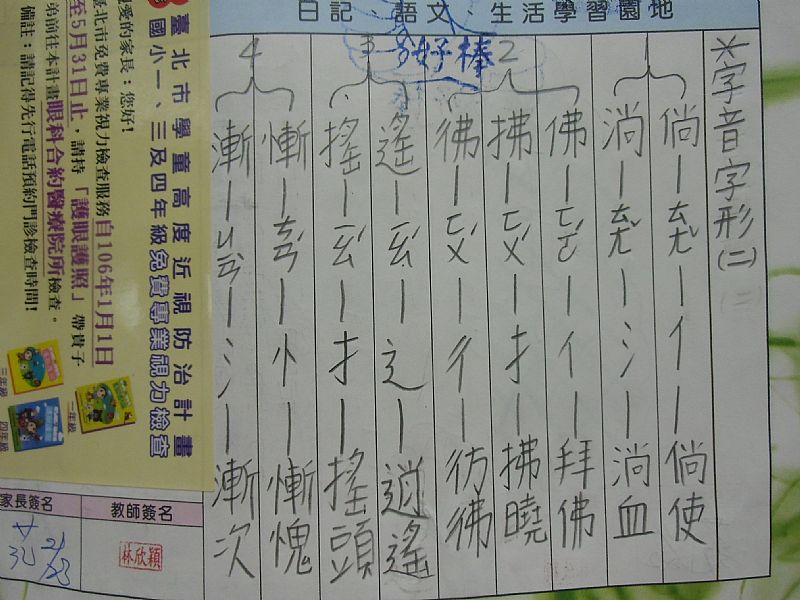 日記、語文 生活學習園地
好棒
※字音字形(二)
1
倘—ㄊㄤˇ—亻—倘使
淌—ㄊㄤˇ—氵—淌血
2
佛—ㄈㄛˊ—亻—拜佛
拂—ㄈㄨˊ—扌—拂曉
彿—ㄈㄨˊ—彳—彷彿
3
遙—ㄧㄠˊ—辶—逍遙
搖—ㄧㄠˊ—扌—搖頭
4
慚—ㄘㄢˊ—忄—慚愧
漸—ㄐㄧㄢˋ—氵—漸次
臺北市學童高度近視防治計畫
國小一、三及四年級免費專業視力檢查
親愛的家長：您好!
臺北市免費專業視力檢查服務自106年1月1日
至5月31日止，請持「護眼護照」帶貴子
弟前往本計畫眼科合約醫療院所檢查。
備註：請記得先行電話預約門診檢查時間!
一年級
三年級
四年級
教師簽名
林欣穎
家長簽名
2/23